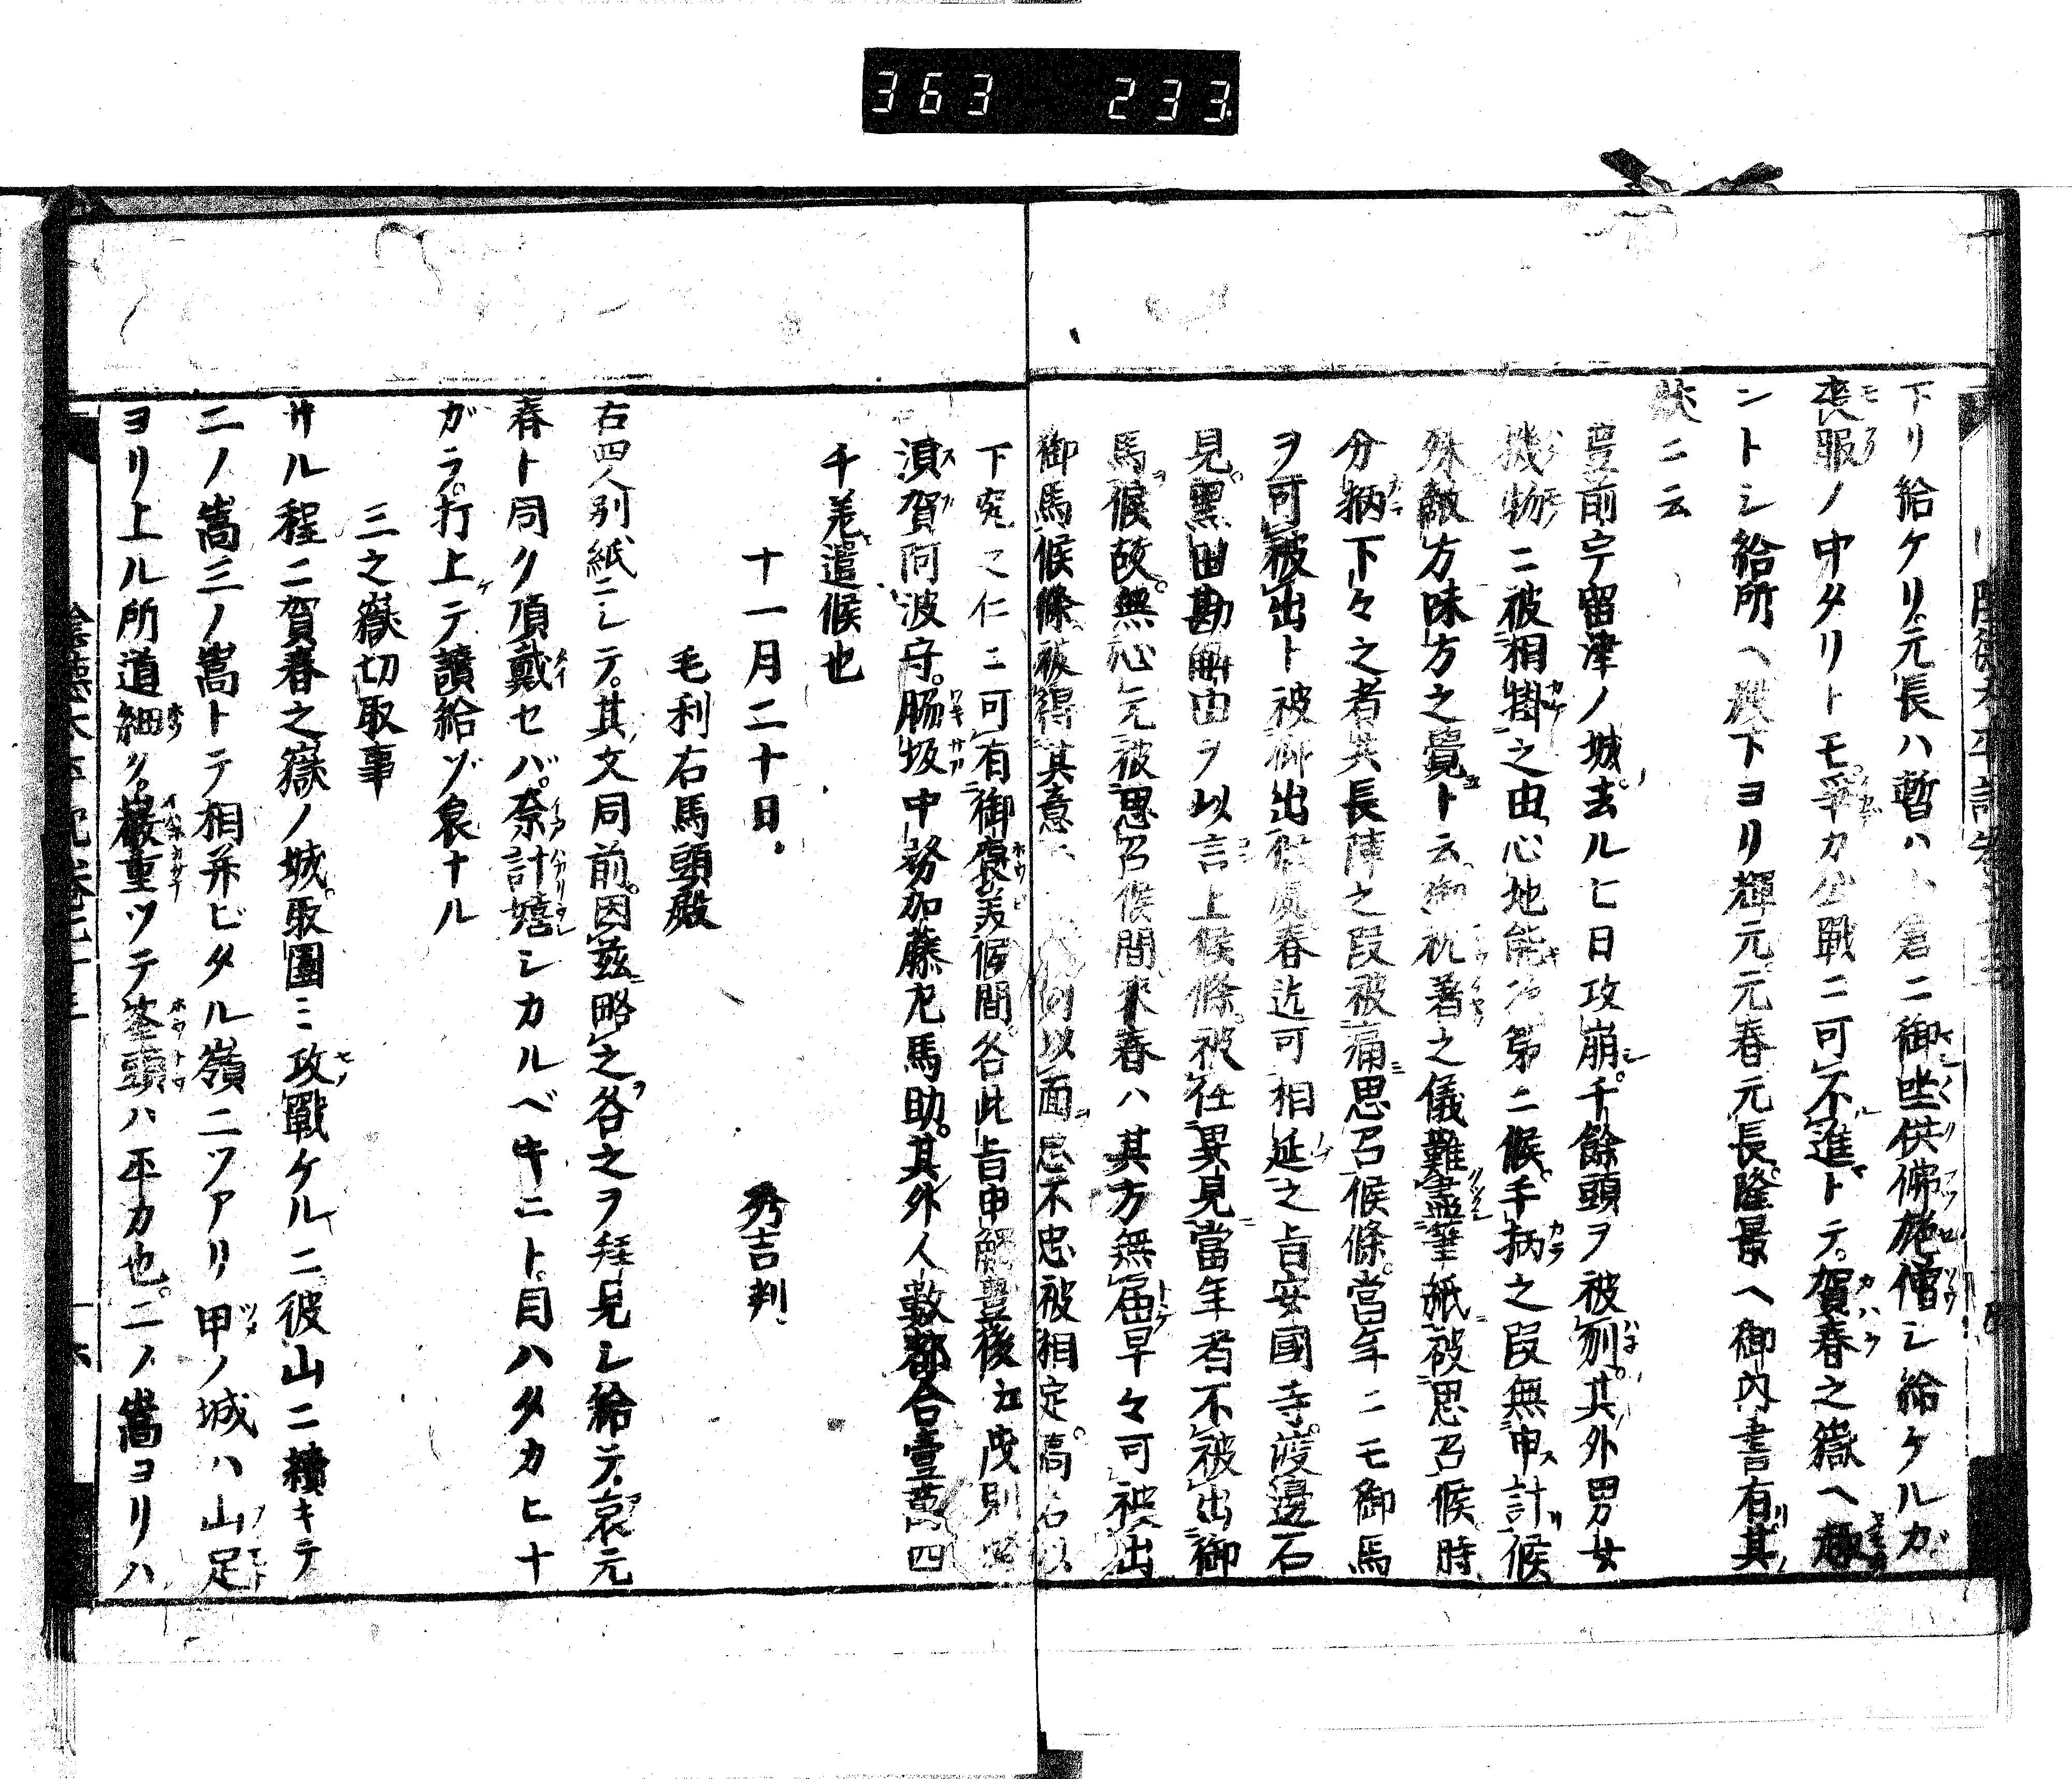 363 233
下リ給ケリ。元長ハ暫ハ小倉ニ御坐供佛施僧シ給ケルガ
喪服ノ中タリトモ。爭カ公戰ニ可不進トテ。賀春之嶽ヘ趣
ントシ給所ヘ殿下ヨリ輝元元春元長隆景ヘ御内書有其
狀ニ云
豊前宇留津ノ城。去ル七日攻崩。千餘頭ヲ被刎。其外男女
機物ニ被相掛之由心地能次第ニ候。手柄之段無申計候
殊敵方味方之覺ト云。御祝着之儀難盡筆紙被思召候時
分柄下々之者共長陣之段被痛思召候條。當年ニモ御馬
ヲ可被出ト被仰出候處春迄可相延之旨安國寺。渡邊石
見。黒田勘解由ヲ以言上候條。被任異見當年者不被出御
馬候故。無心元被思召候間。來春ハ其方無届早々可被出
御馬候條。被得其意 以面忠不忠被相定。高名以
下究之仁ニ可有御褒美候間。各此旨申觸豊後江茂則
湏賀阿波守。脇坂中務加藤左馬助。其外人數都合壹萬四
千差遣候也
十一月二十日。 秀吉判
毛利右馬頭殿
右四人別紙ニシテ。其文同前。因玆略之各之ヲ拜見シ給テ。哀元
春ト同ク頂戴セバ。奈計嬉シカルベキニト。目ハタカヒ十
ガラ。打上テ讀給ゾ哀ナル
三之嶽切取事
サル程ニ賀春之嶽ノ城。取圍ミ攻戰ケルニ彼山ニ續キテ
二ノ嵩三ノ嵩トテ相并ビタル嶺ニツアリ甲ノ城ハ山足
ヨリ上ル所道細ク。巌重ツテ峯頭ハ平カ也。二ノ嵩ヨリハ